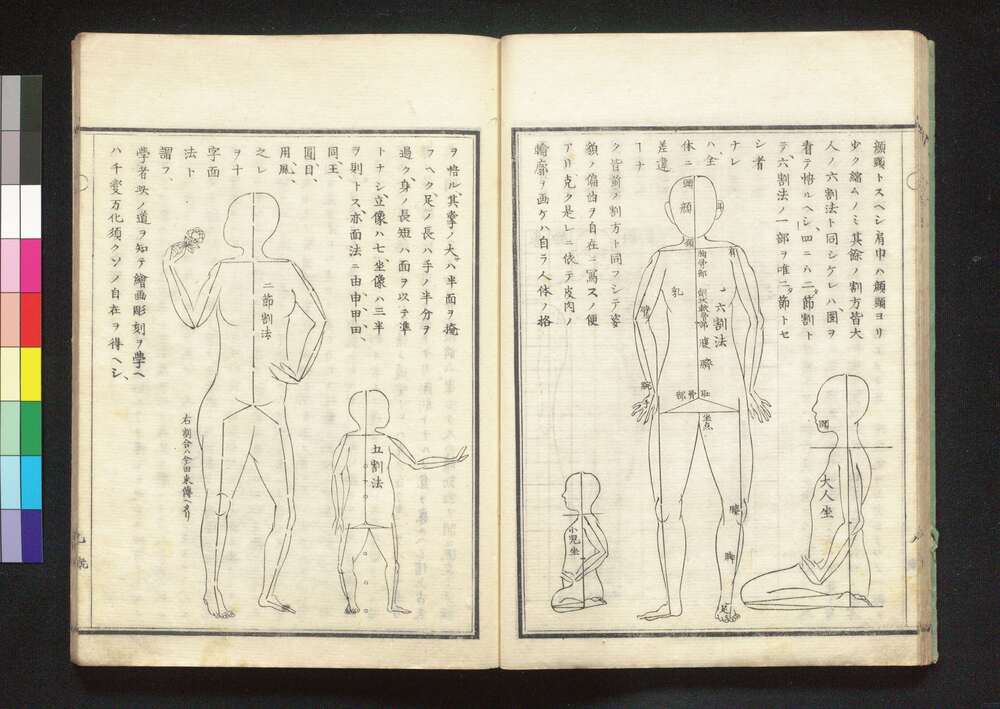 顔頭トスヘシ肩巾ハ顔頭ヨリ
少ク縮ムノミ其餘ノ割方皆大
人ノ六割法ト同シケレハ圖ヲ
看テ悟ルヘシ四ニハ二節割ト
テ六割法ノ一部ヲ唯二節トセ
シ者
ナレ
ハ全
体ニ
差違
ナ
ク皆前ノ割方ト同フシテ姿
貌ノ偏曲ヲ自在ニ寫スノ便
アリ克ク是レニ依テ皮肉ノ
輪廓ヲ画ケハ自ラ人体ノ格
頭
顔
耳
頸
胸骨部
肩
乳
六割法
劔状軟骨部
腹
臍
臂
腕
手
恥骨部
坐点
膝
脚
足
大人坐
小児坐
ヲ悟ル、其掌ノ大ハ半面ヲ掩
フヘク、足ノ長ハ手ノ半分ヲ
過ク、身ノ長短ハ面ヲ以テ準
トナシ、立像ハ七、坐像ハ三半
ヲ則トス亦面法ニ由申甲田、
同、王、
圓、目、
用、風、
之レ
ヲ十
字面
法ト
謂フ、
學者此ノ道ヲ知テ繪画彫刻ヲ學ヘ
ハ千變万化須クソノ自在ヲ得ヘシ、
二節割法
五割法